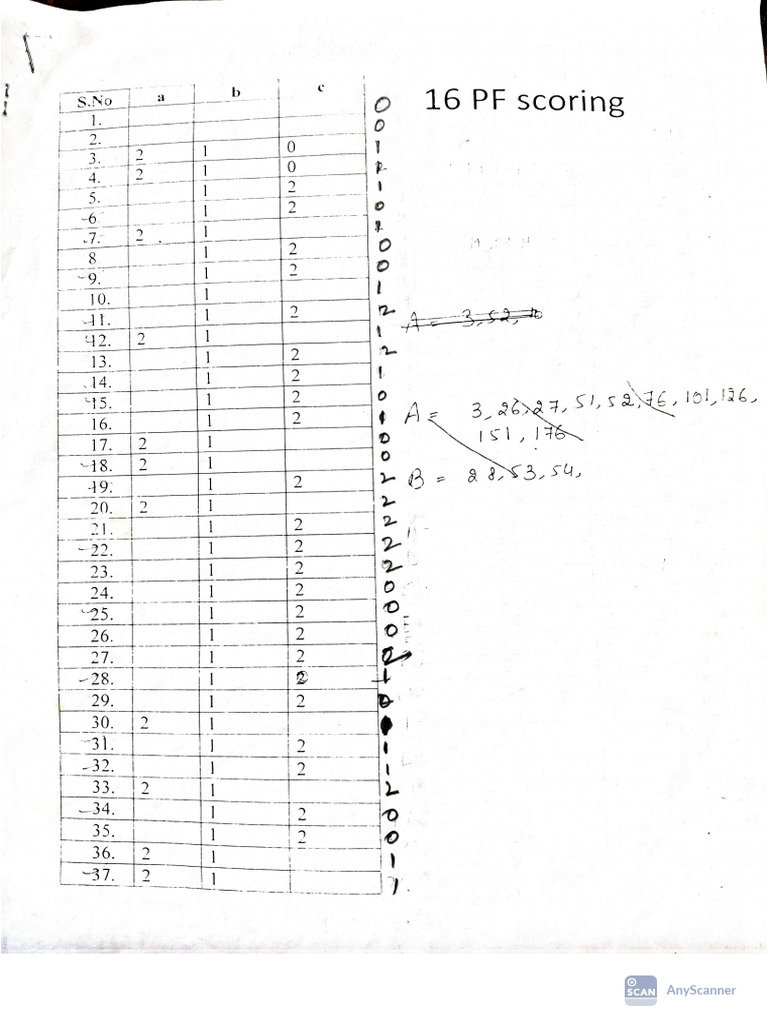 16 PF scoring
S.No a b c
1. 0
2. 0
3. 2 1 0 1
4. 2 1 0
5. 1 2 1
6. 1 2 0
7. 2 1
8 1 2 0
9. 1 2 0
10. 1 1
11. 1 2 2
12. 2 1 1
13. 1 2 2
14. 1 2 1
15. 1 2 0
16. 1 2
17. 2 1 0
18. 2 1 0
19. 1 2 2
20. 2 1 2
21. 1 2 2
22. 1 2 2
23. 1 2 2
24. 1 2 0
25. 1 2 0
26. 1 2 0
27. 1 2
28. 1 2
29. 1 2
30. 2 1
31. 1 2 1
32. 1 2 1
33. 2 1 2
34. 1 2 0
35. 1 2 0
36. 2 1 1
37. 2 1 1
A = 3, 52,
A = 3, 26, 27, 51, 52, 76, 101, 126,
151, 176
B = 28, 53, 54,
SCAN AnyScanner